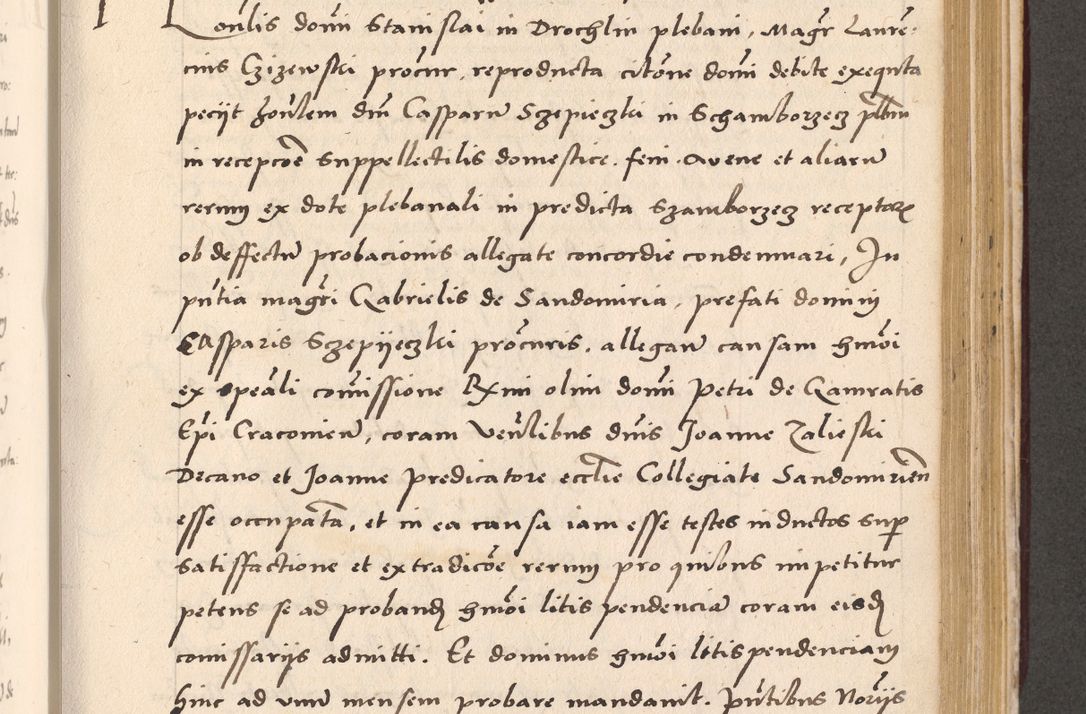 domini Stanislai in Drochlin plebani, Magr Lauren:
cius Czizewski procur, reproducta citone domi debite exequta
peciit honlem dm Casparu Sczepieczki in Schamborzecz plbm
in recepcoe suppellectilis domestice. feni. avene et aliaru
rerum ex dote plebanali in predicta Szamborzecz receptar
ob deffectu probacionis allegate concordie condemnari, In
pntia magri Gabrielis de Sandomiria, prefati domini
Casparis Sczepijeczki procuris. allegan causam hmoi
ex speali comissione Rxmi olim domi Petri de Gamratis
Epi Cracovien, coram venlibus dnis Joanne Zalieski
Decano et Joanne predicatore ecclie Collegiate Sandomirien
esse occupata, et in ea causa iam esse testes inductos sup
satisfactione et extradicoe rerum pro quibus impetitur
petens se ad proband hmoi litis pendencia coram eisd
comissarijs admitti. Et dominus hmoi litispendenciam
hinc ad unu mensem probare mandavit. Pntibus Norijs